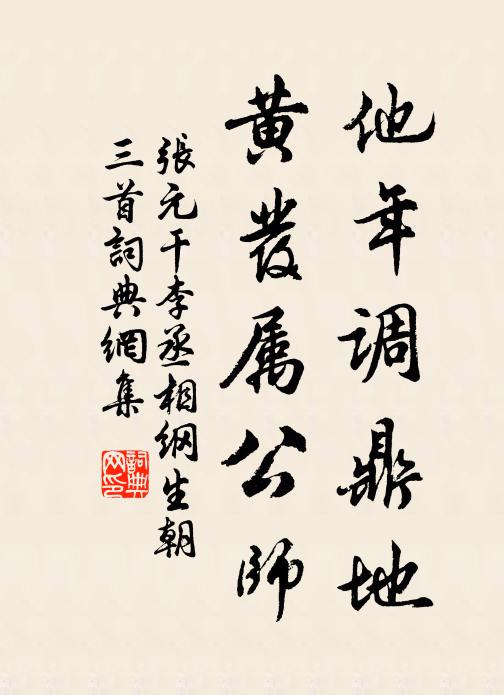 他年调鼎地
黄发属公师
張元干李丞相纲生朝
三首詞典網集
詞典网印